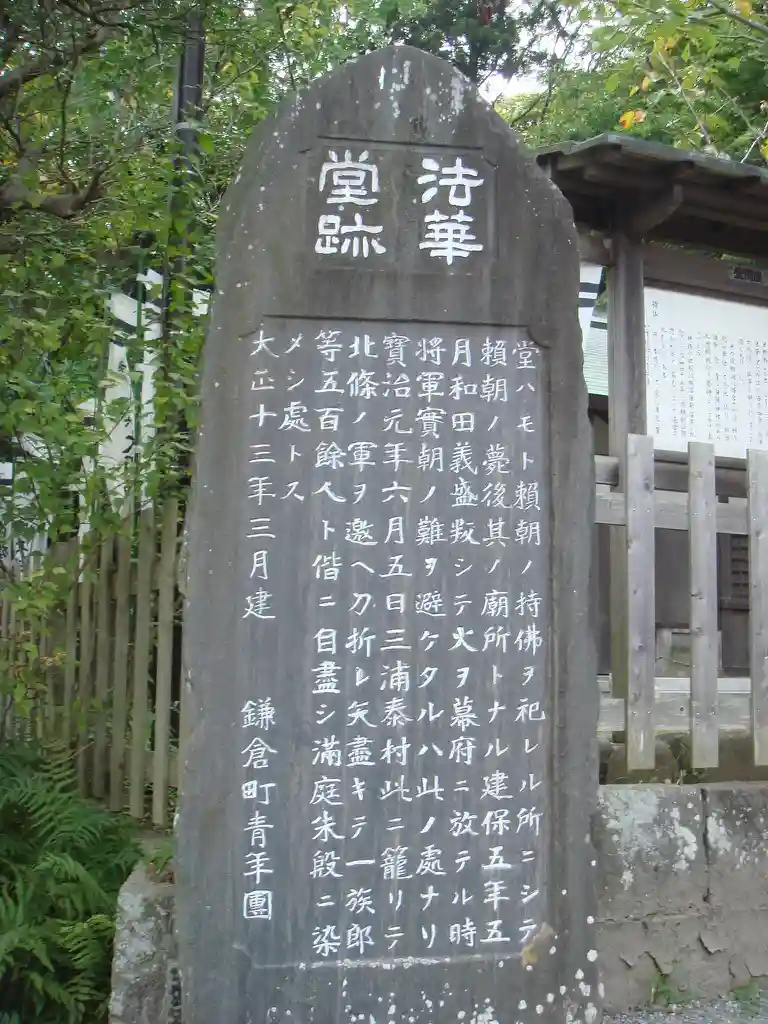 法華
堂跡
堂ハモト頼朝ノ持佛ヲ祀レル所ニシテ
頼朝ノ薨後其ノ廟所トナル建保五年五
月和田義盛叛シテ火ヲ幕府ニ放テル時
將軍實朝ノ難ヲ避ケタルハ此ノ處ナリ
寶治元年六月五日三浦泰村此ニ籠リテ
北條ノ軍ヲ邀ヘ刀折レ矢盡キテ一族郎
等五百餘人ト偕ニ自盡シ滿庭朱殷ニ染
メシ處トス
大正十三年三月建 鎌倉町青年團